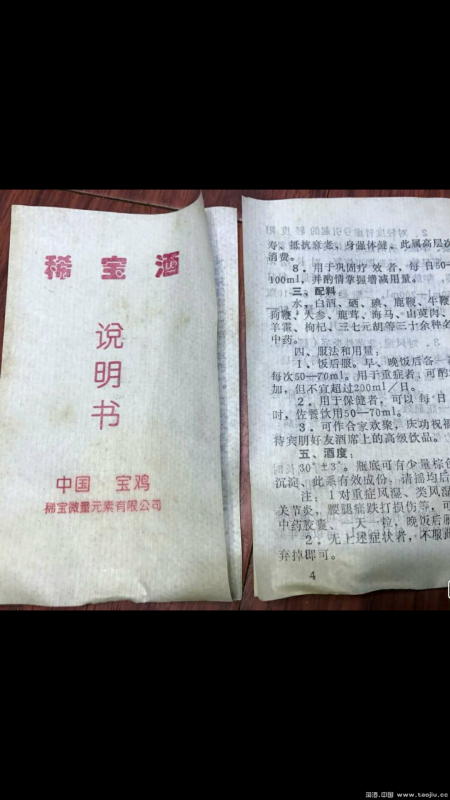 稀宝酒
说
明
书
中国 宝鸡
稀宝微量元素有限公司
寿、抵抗衰老、身强体健。此属高层次
消费。
8、用于巩固疗效者，每日50—
100ml，并酌情掌握增减用量。
三、配料
水，白酒、硒、碘、鹿鞭、牛鞭
狗鞭、人参、鹿茸、海马、山萸肉、
羊霍、枸杞、三七元胡等三十余种名
中药。
四、服法和用量：
1、饭后服。早、晚饭后各
每次50—70ml。用于重症者，可酌
加，但不宜超过200ml／日。
2、用于保健者，可以每日
时，佐餐饮用50—70ml。
3、可作合家欢聚，庆功祝福
待宾朋好友酒席上的高级饮品。
五、酒度：
30°±3°。瓶底可有少量棕色
沉淀、此系有效成份、请摇均后
注：1对重症风湿、类风湿
关节炎，腰腿疼跌打损伤等，可
中药胶囊、一天一粒，晚饭后服
2、无上述症状者，不服
弃掉即可。
4
淘酒.中国 www.taojiu.cc